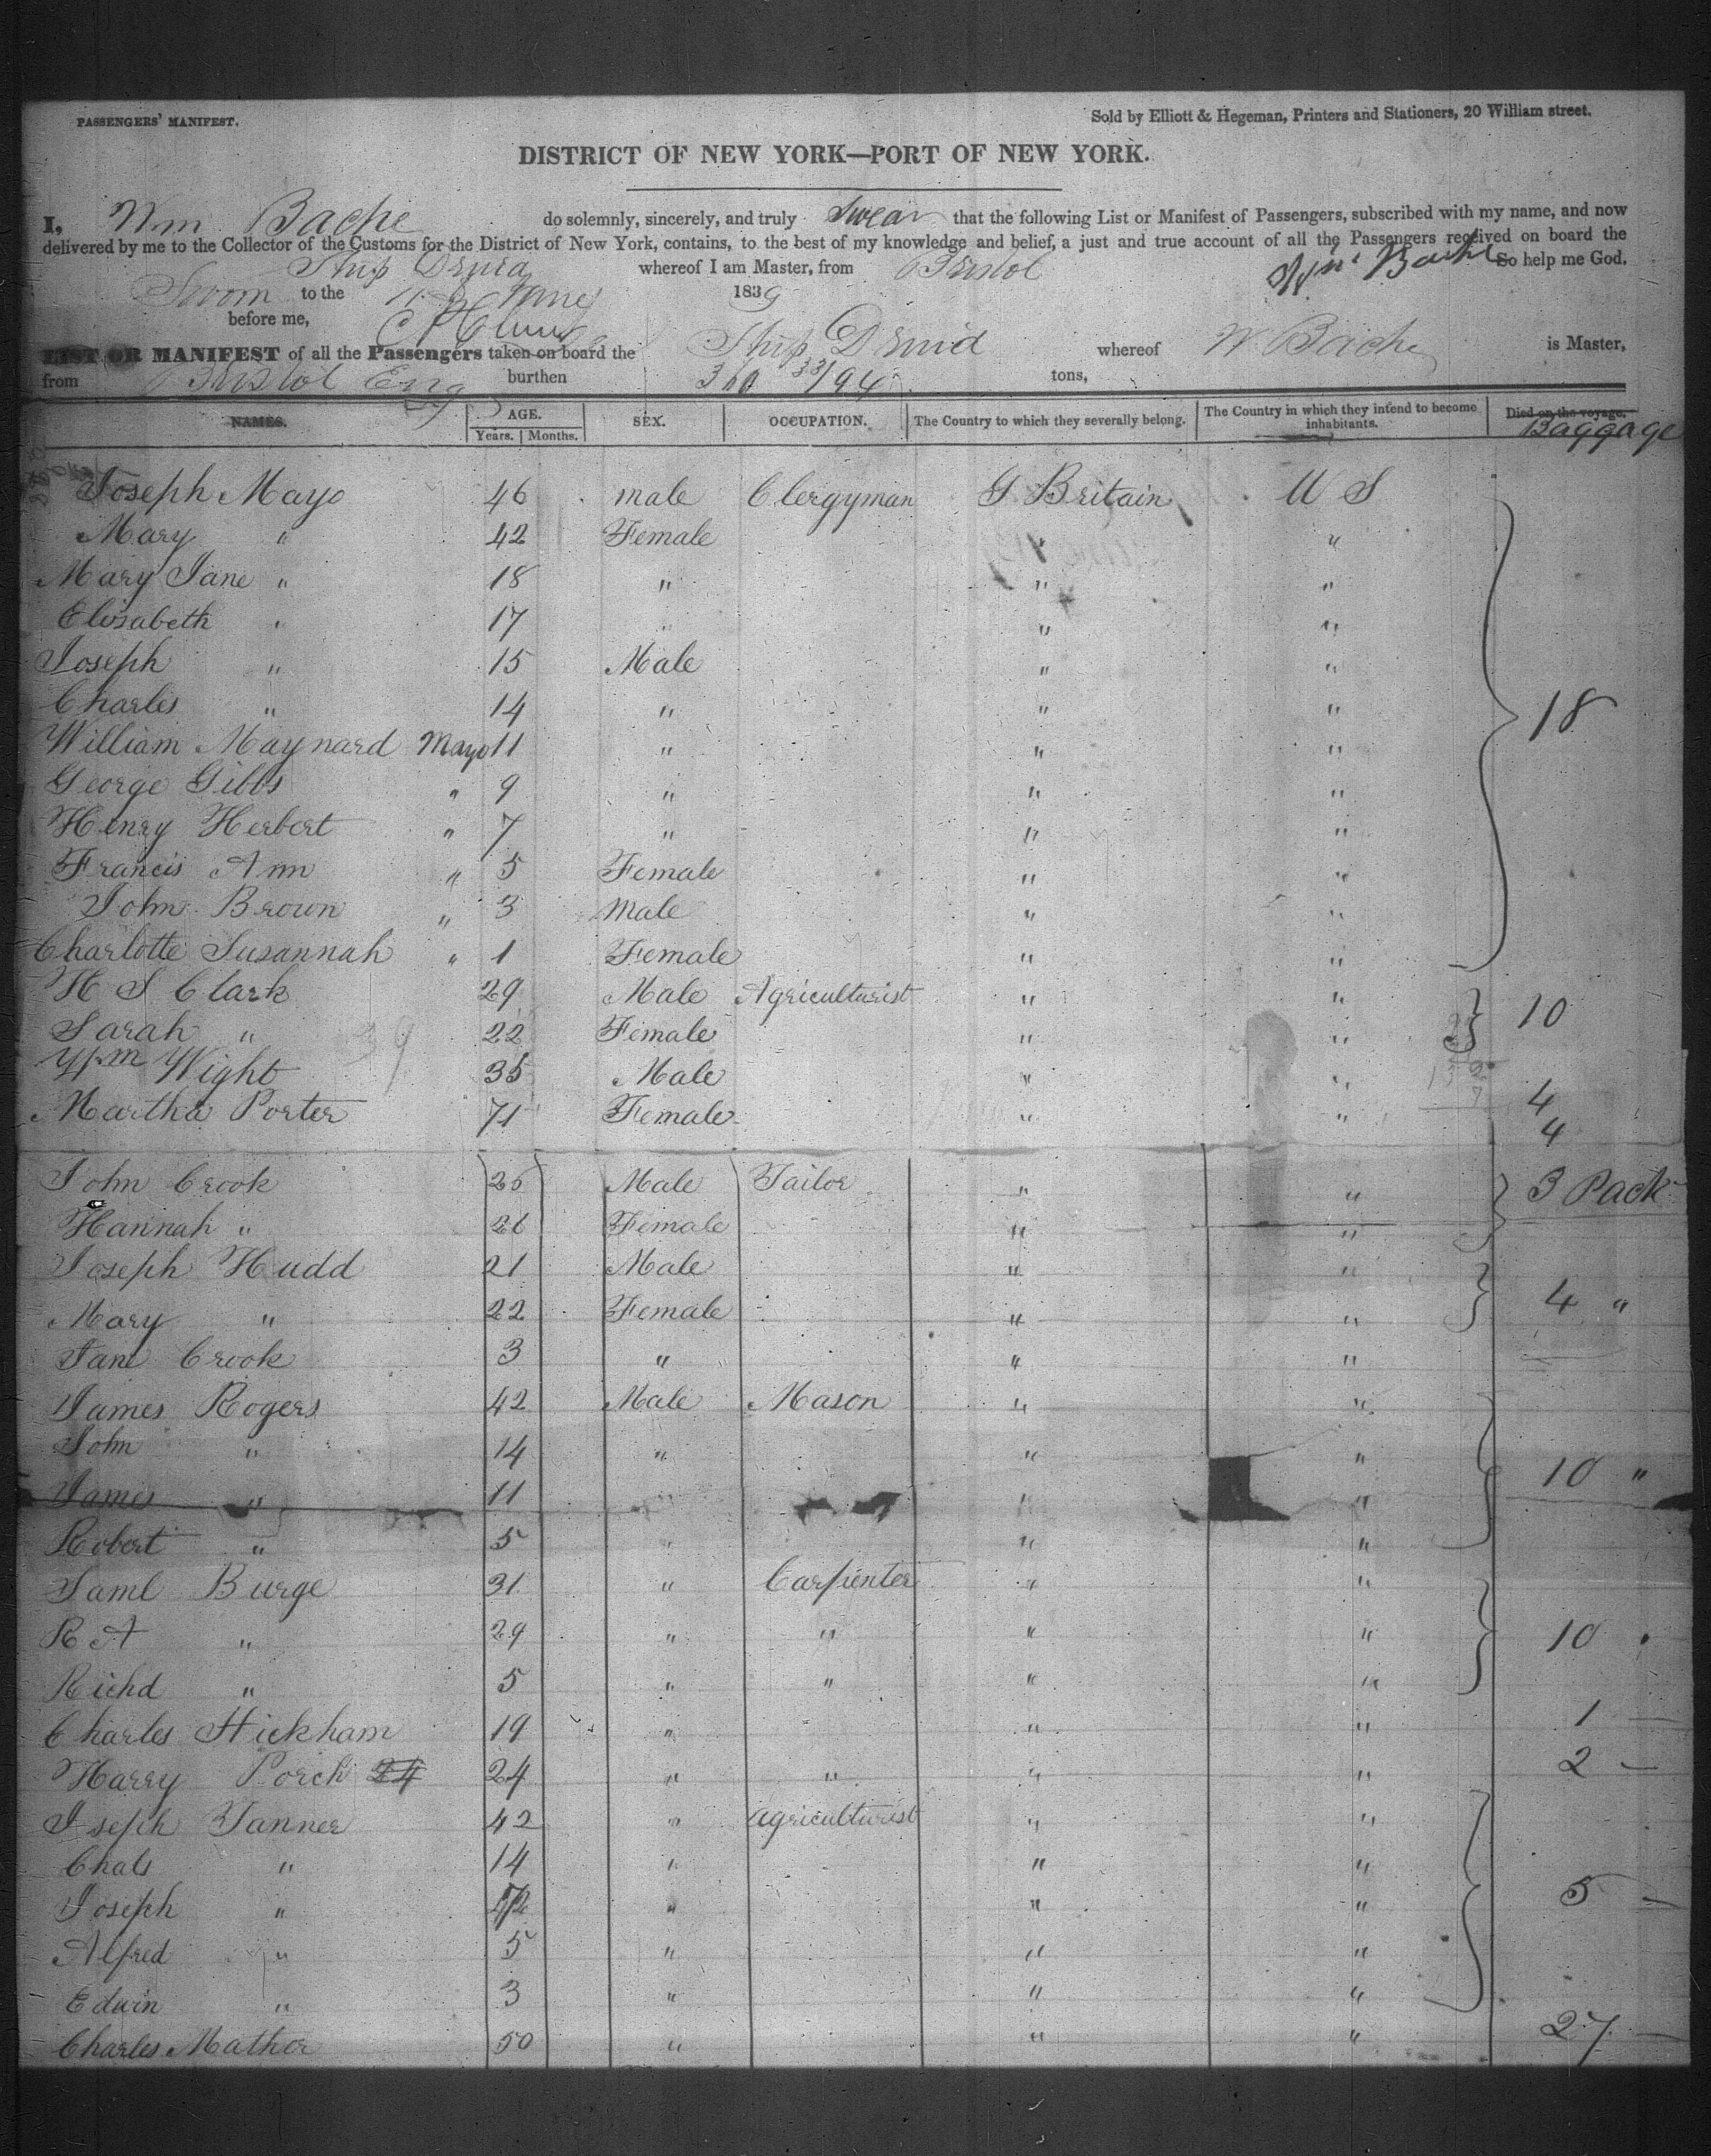 PASSENGERS' MANIFEST.
Sold by Elliott & Hegeman, Printers and Stationers, 20 William street.
DISTRICT OF NEW YORK—PORT OF NEW YORK.
I, Wm Bache do solemnly, sincerely, and truly Swear that the following List or Manifest of Passengers, subscribed with my name, and now
delivered by me to the Collector of the Customs for the District of New York, contains, to the best of my knowledge and belief, a just and true account of all the Passengers received on board the
Ship Druid whereof I am Master, from Bristol Wm Bache So help me God.
Sworn to the 1839
before me,
LIST OR MANIFEST of all the Passengers taken on board the Ship Druid whereof W Bache is Master,
from Bristol Eng burthen 33/94 tons,
NAMES. AGE. Years. Months. SEX. OCCUPATION. The Country to which they severally belong. The Country in which they intend to become inhabitants. Died on the voyage. Baggage
Joseph Mayo 46 male Clergyman G Britain U S
Mary " 42 Female " "
Mary Jane " 18 " " "
Elisabeth " 17 " " "
Joseph " 15 Male " "
Charles " 14 " " " 18
William Maynard Mayo 11 " " "
George Gibbs " 9 " " "
Henry Herbert " 7 " " "
Francis Ann " 5 Female " "
John Brown " 3 Male " "
Charlotte Susannah " 1 Female " "
H S Clark 29 Male Agriculturist " " 10
Sarah " 22 Female " "
Wm Wight 35 Male " " 4
Martha Porter 71 Female " " 4
John Crook 25 Male Tailor " " 3 Pack
Hannah " 21 Female " "
Joseph Hudd 21 Male " "
Mary " 22 Female " " 4 "
Jane Crook 3 " " "
James Rogers 42 Male Mason " "
John " 14 " " "
James " 11 " " " 10 "
Robert " 5 " " "
Saml Burge 31 " Carpenter " "
R A " 29 " " " " 10
Richd " 5 " " " "
Charles Hickham 19 " " " 1 —
Harry Porch 24 24 " " " " 2 —
Joseph Tanner 42 " agriculturist " "
Chals " 14 " " "
Joseph " " " " 5 —
Alfred " 5 " " "
Edwin " 3 " " "
Charles Mather 50 " " " 27 —